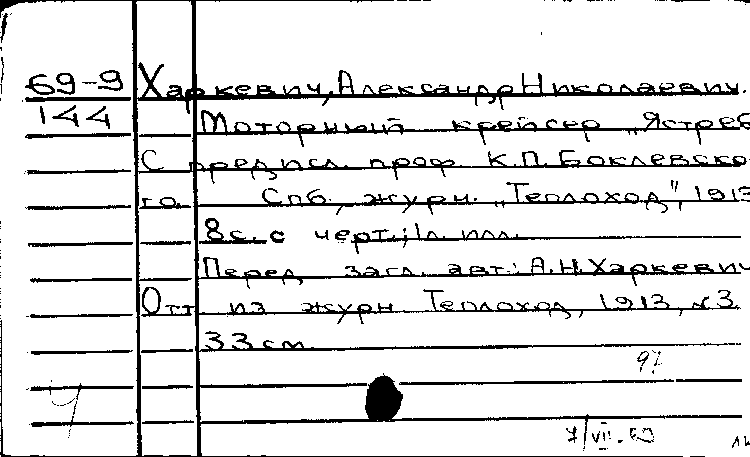 69-9 Харкевич, Александр Николаевич.
144 Моторный крейсер „Ястреб
С предисл. проф К.П. Боклевско
го. Спб, журн. „Теплоход", 1913
8с. с черт.; 1л илл.
Перед загл. авт.: А.Н. Харкевич
Отт из журн Теплоход, 1913, №3
33 см.
97
У
7/VII-69